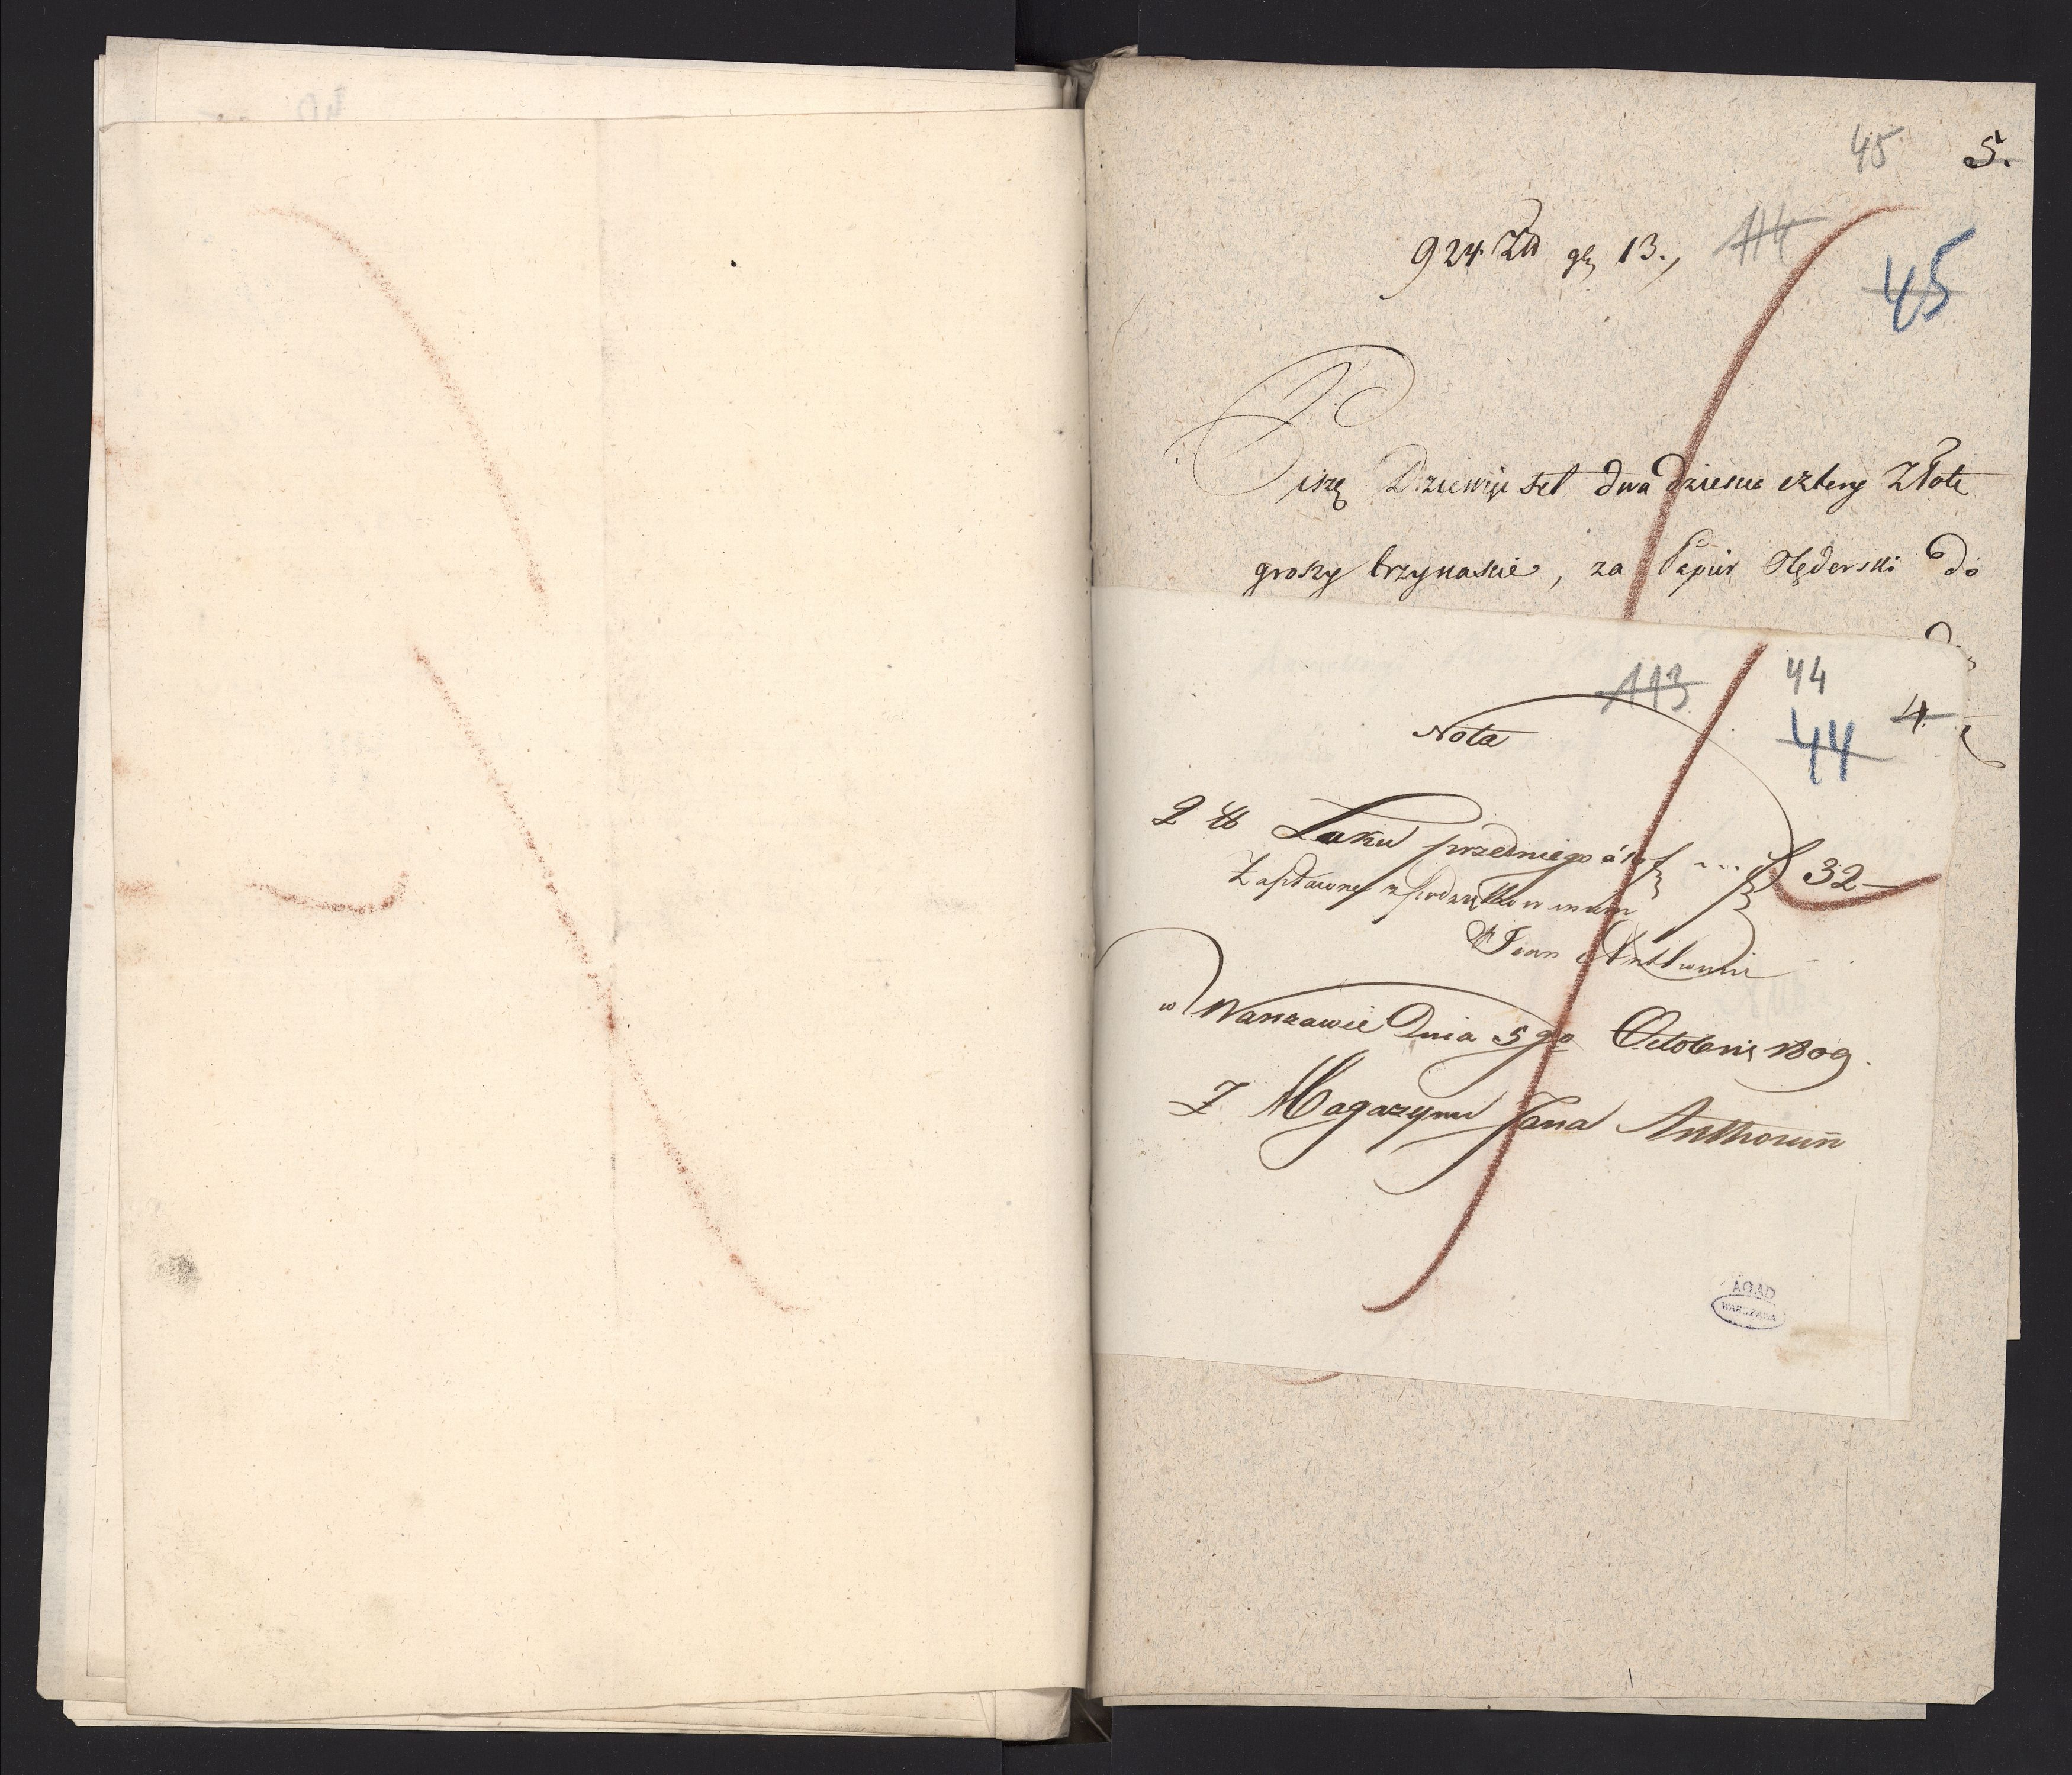 45 5.
924 Złł gr 13., 114
45
Piszę Dziewięć set dwadziescia cztery Złote
groszy trzynascie, za Papier Olęderski do
113 44
Nota 44 4.
2 ℔ Laku przedniego á 16 f ... f 32 —
Zapłacone z podziękowaniem
Jean Anthonin
w Warszawie Dnia 5go Octobris 1809.
Z Magazynu Jana Anthonin
AGAD
WARSZAWA